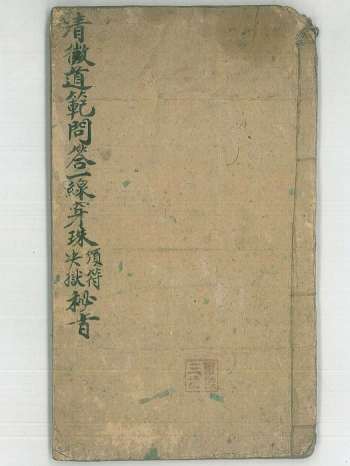 清微道範問答一線穿珠
頒符
破獄
秘旨